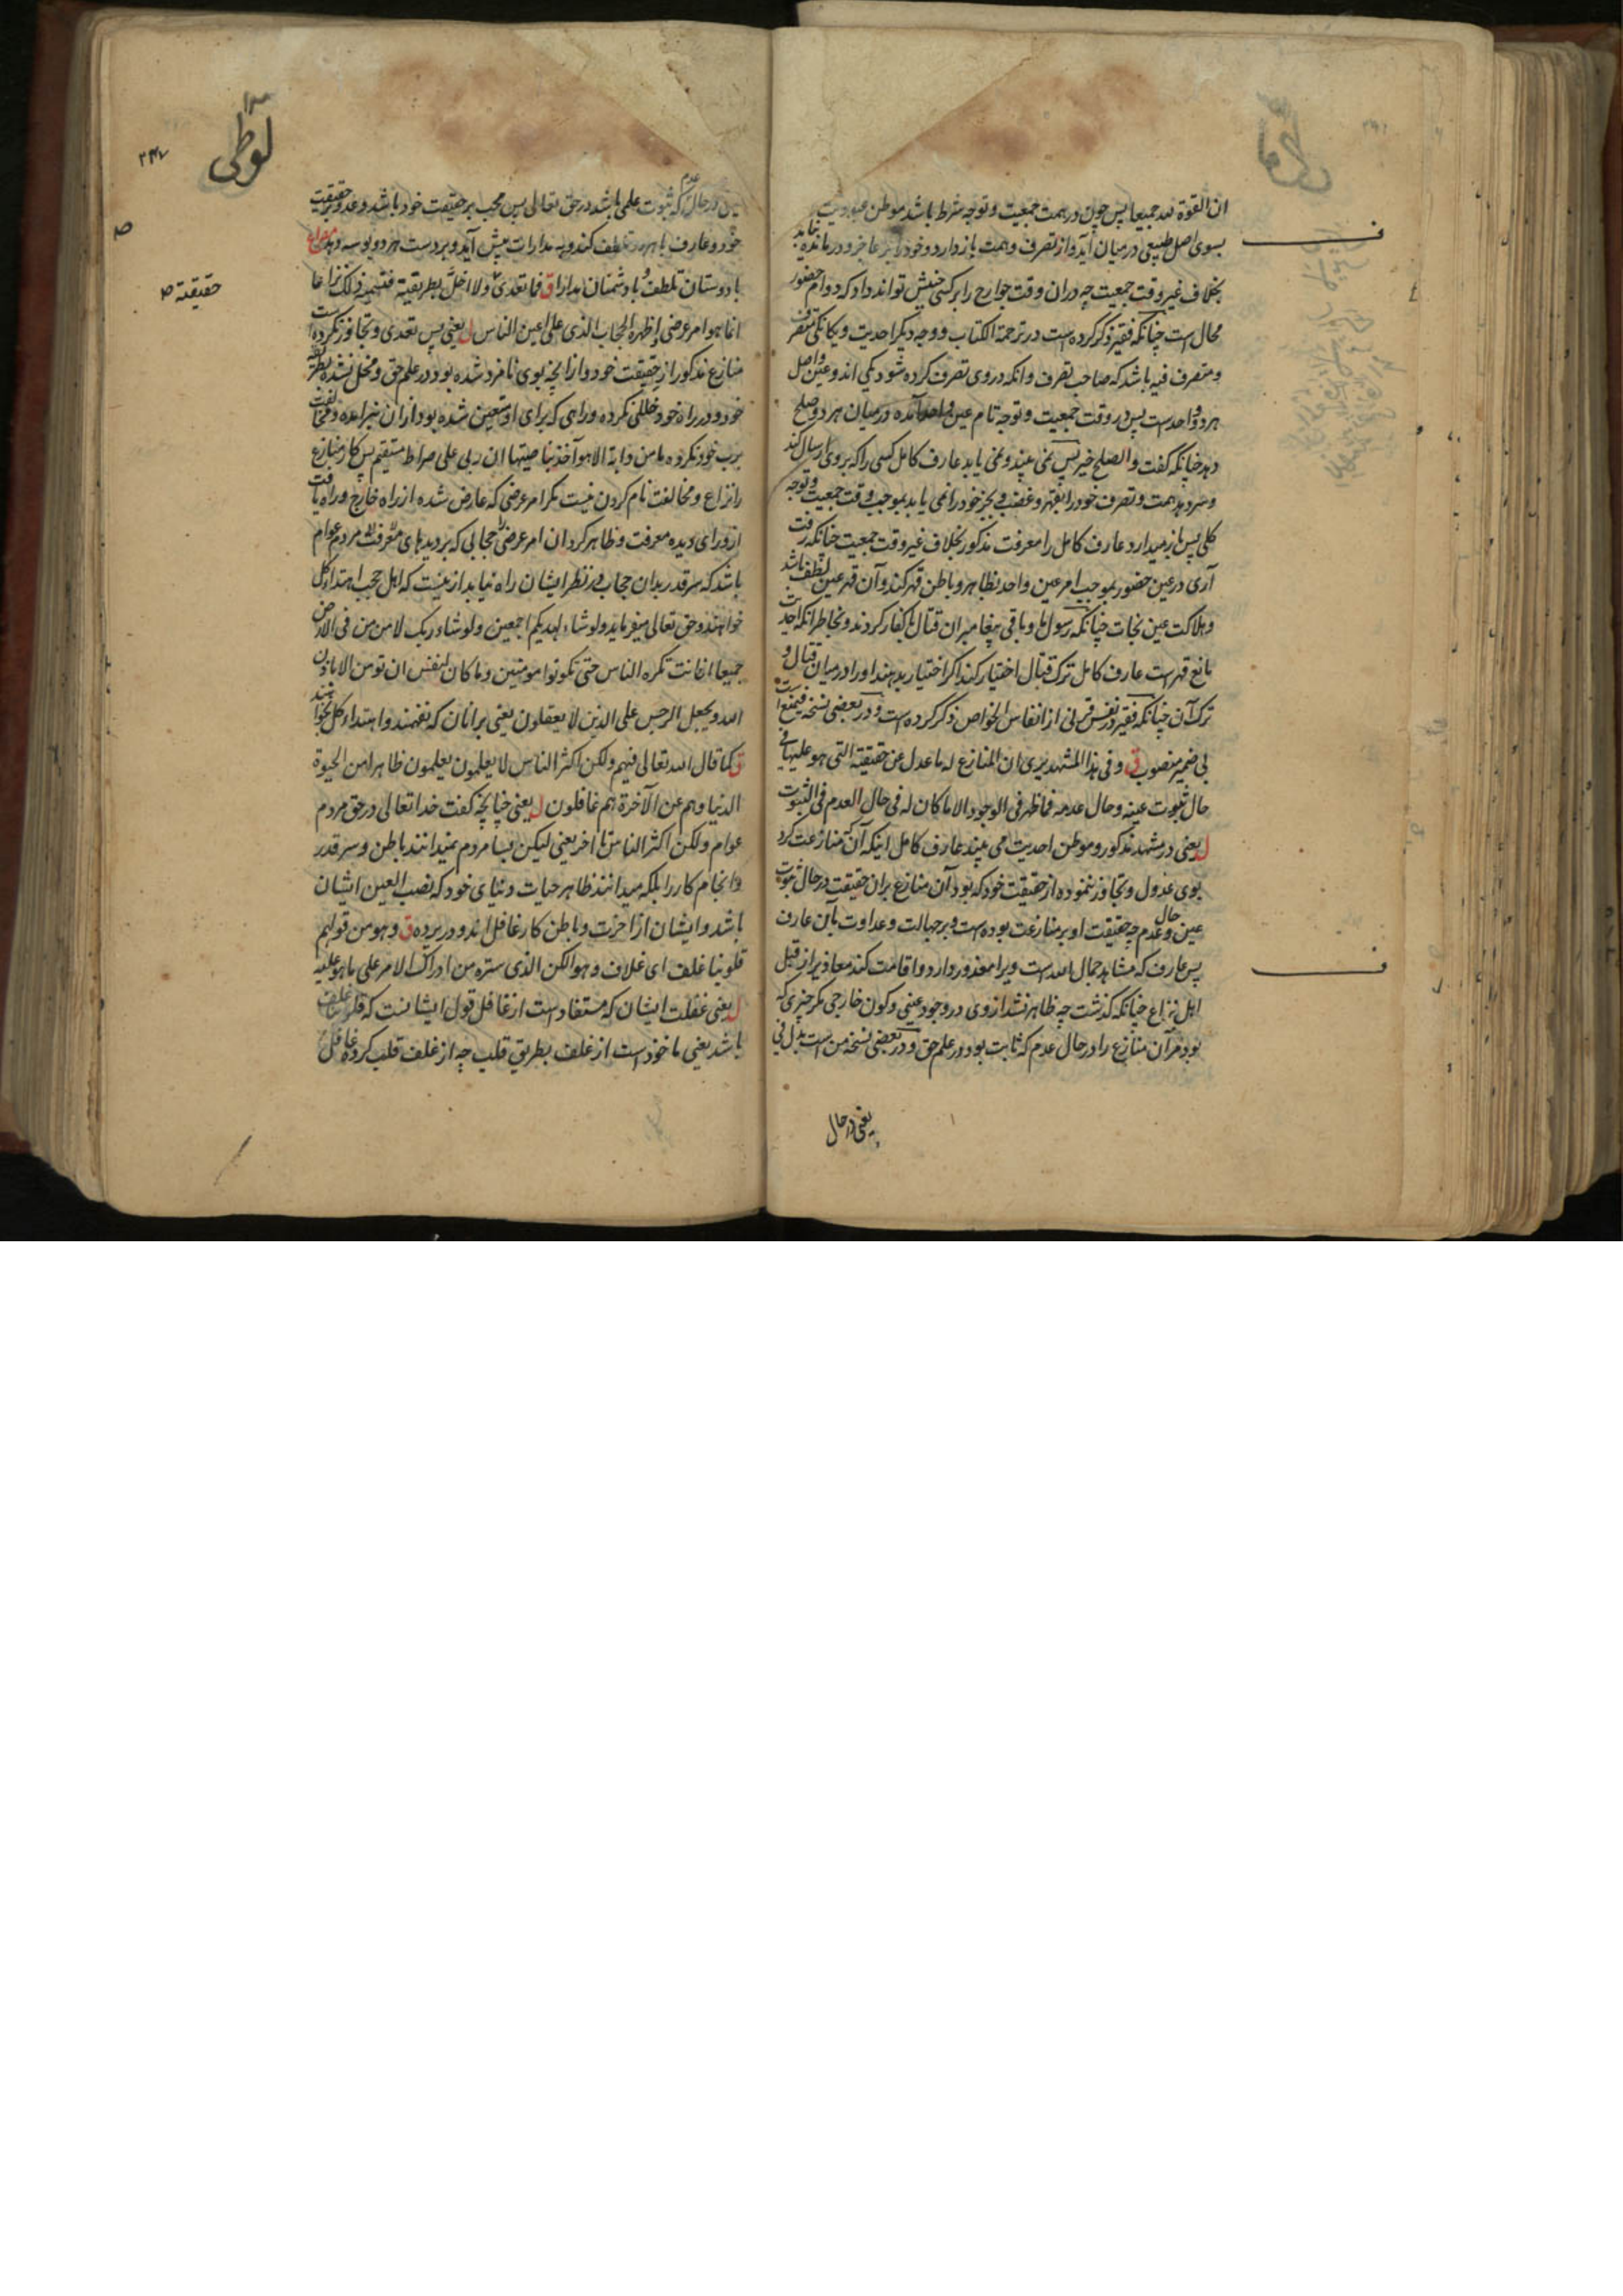 ان القوة لله جمیعا پس چون در همت جمعیت و توجه شرط باشد موطن عبودیت
بسوی اصل طبیعی درمیان آید و از تصرف و همت باز دارد و خود را بر عاجز و درمانده یابد
بخلاف غیر وقت جمعیت چه دران وقت جوارح را بر کسی جنبش تواند داد که دوام حضور
محال است چنانکه فقیر ذکر کرده است در ترجمة الکتاب و وجه دیکر احدیت و یکانکی متصرف
و متصرف فیه باشد که صاحب تصرف و انکه در وی تصرف کرده شود یکی اند و عین و اصل
هر دو واحد ست پس در وقت جمعیت و توجه تام عین واحد آمده درمیان هر دو صلح
دهد چنانکه کفت والصلح خیر پس نمی بیند و نمی یابد عارف کامل کسی را که بر وی ارسال کند
و سر دهد همت و تصرف خود را بقهر و غضب و بجز خود را نمی یابد بموجب وقت جمعیت و توجه
کلی پس باز میدارد عارف کامل را معرفت مذکور بخلاف غیر وقت جمعیت چنانکه رفت
آری در عین حضور بموجب امر عین واحد بظاهر و باطن قهر کند و آن قهر عین لطف باشد
و هلاکت عین نجات چنانکه رسول ما و باقی پیغامبران قتال با کفار کردند و بخاطر انکه احدیت
مانع قهر ست عارف کامل ترک قتال اختیار کند اکر اختیار بدهند او را درمیان قتال و
ترک آن چنانکه فقیر در نفس قرنی از انفاس الخواص ذکر کرده ست و در بعضی نسخه فیمنع است
بی ضمیر منصوب ق و فی هذا المشهد یری ان المنازع له ما عدل عن حقیقته التی هو علیها فی
حال ثبوت عینه و حال عدمه فما ظهر فی الوجود الا ما کان له فی حال العدم فی الثبوت
ل یعنی در مشهد مذکور و موطن احدیت می بیند عارف کامل اینکه آن که منازعت کرد
بوی عدول و تجاوز ننموده از حقیقت خود که بود آن منازع بران حقیقت در حال ثبوت
عین و حال عدم چه حقیقت او بر منازعت بوده ست و بر جهالت و عداوت بآن عارف
پس عارف که مشاهد جمال الله ست ویرا معذور دارد و اقامت کند معاذیر از قبل
اهل نزاع چنانکه کذشت چه ظاهر نشد از وی در وجود عینی و کون خارجی مکر چیزی که
بود مر آن منازع را در حال عدم که ثابت بود در علم حق و در بعضی نسخه من است بدل فی
یعنی در حال
لوطی
۲۴۷
یعنی در حال عدم که ثبوت علمی باشد در حق تعالی پس محب بر حقیقت خود باشد و عدو بر حقیقت
خود و عارف با هر دو تلطف کند و به مدارات پیش آید و بر دست هر دو بوسه دهد مصراع
با دوستان تلطف و با دشمنان مدارا ق فما تعدی ولا اخل بطریقته فتسمیة ذلک نزاعا
انما هو امر عرضی اظهره الحجاب الذی علی اعین الناس ل یعنی پس تعدی و تجاوز نکرده است
منازع مذکور از حقیقت خود و از انچه بوی نامزد شده بود در علم حق و مخل نشده بطریقه
خود و در راه خود خللی نکرده و راهی که برای او متعین شده بود از ان نبرامده و مخالفت
برب خود نکرده ما من دابة الا هو آخذ بناصیتها ان ربی علی صراط مستقیم پس کار منازع
را نزاع و مخالفت نام کردن نیست مکر امر عرضی که عارض شده از راه خارج و راه یافت
از ورای دیده معرفت و ظاهر کرد ان امر عرضی را حجابی که بر دیدهای معرفت مردم عوام
باشد که سر قدر بدان حجاب در نظر ایشان راه نیابد ازینست که اهل حجب اهتداء کل
خواهند و حق تعالی میفرماید ولو شاء لهدیکم اجمعین ولو شاء ربک لامن من فی الارض
جمیعا افانت تکره الناس حتی تکونوا مومنین و ما کان لنفس ان تومن الا باذن
الله و یجعل الرجس علی الذین لا یعقلون یعنی برانان که نفهمند و اهتداء کل بخواهند
ق کما قال الله تعالی فیهم ولکن اکثر الناس لا یعلمون یعلمون ظاهرا من الحیوة
الدنیا و هم عن الآخرة هم غافلون ل یعنی چنانچه کفت خدا تعالی در حق مردم
عوام ولکن اکثر الناس تا اخر یعنی لیکن بسا مردم نمیدانند باطن و سر قدر
و انجام کار را بلکه میدانند ظاهر حیات دنیای خود که نصب العین ایشان
باشد و ایشان از اخرت و باطن کار غافل اند و در پرده ق و هو من قولهم
قلوبنا غلف ای غلاف و هو الکن الذی ستره من ادراک الامر علی ما هو علیه
ل یعنی غفلت ایشان که مستفاد است از غافل قول ایشانست که قلوبنا غلف
باشد یعنی ماخوذ است از غلف بطریق قلب چه از غلف قلب کرده غافل
حقیقته ص